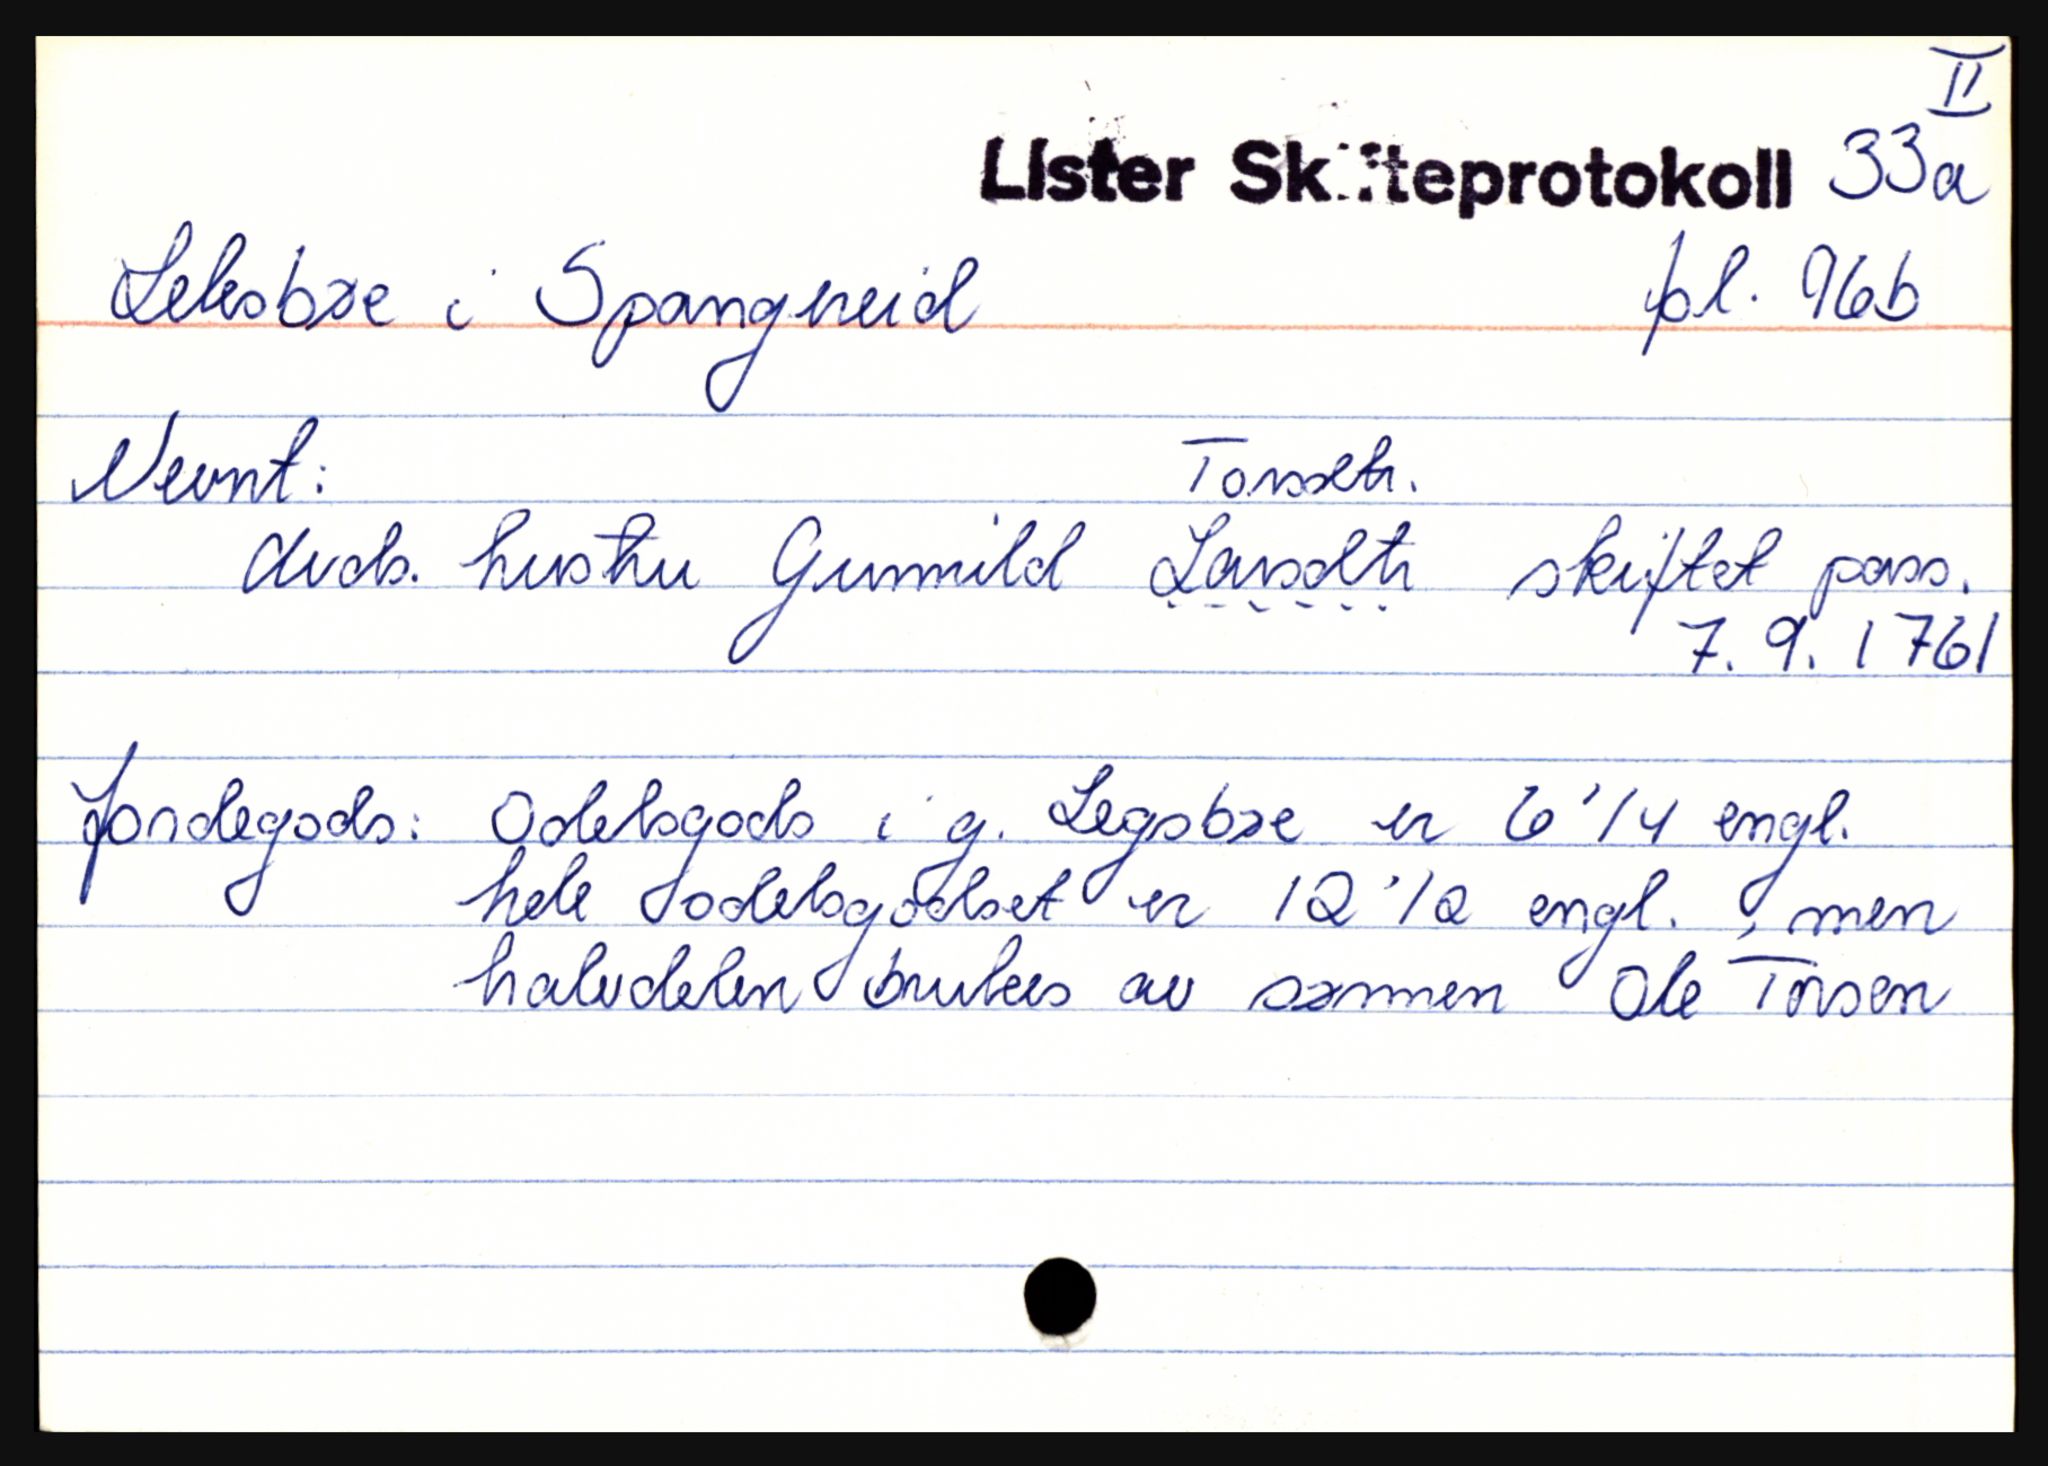 II
Lister Skifteprotokoll 33a
Leksbøe i Spangereid fol. 96b
Nevnt: Torsdtr.
avds. hustru Gunnild Larsdtr skiftet pass.
7. 9. 1761
Jordegods: Odelsgods i g. Legsbøe er 6 1/4 engl.
hele Jodelsgodset er 12 1/2 engl., men
halvdelen brukes av sønnen Ole Torsen